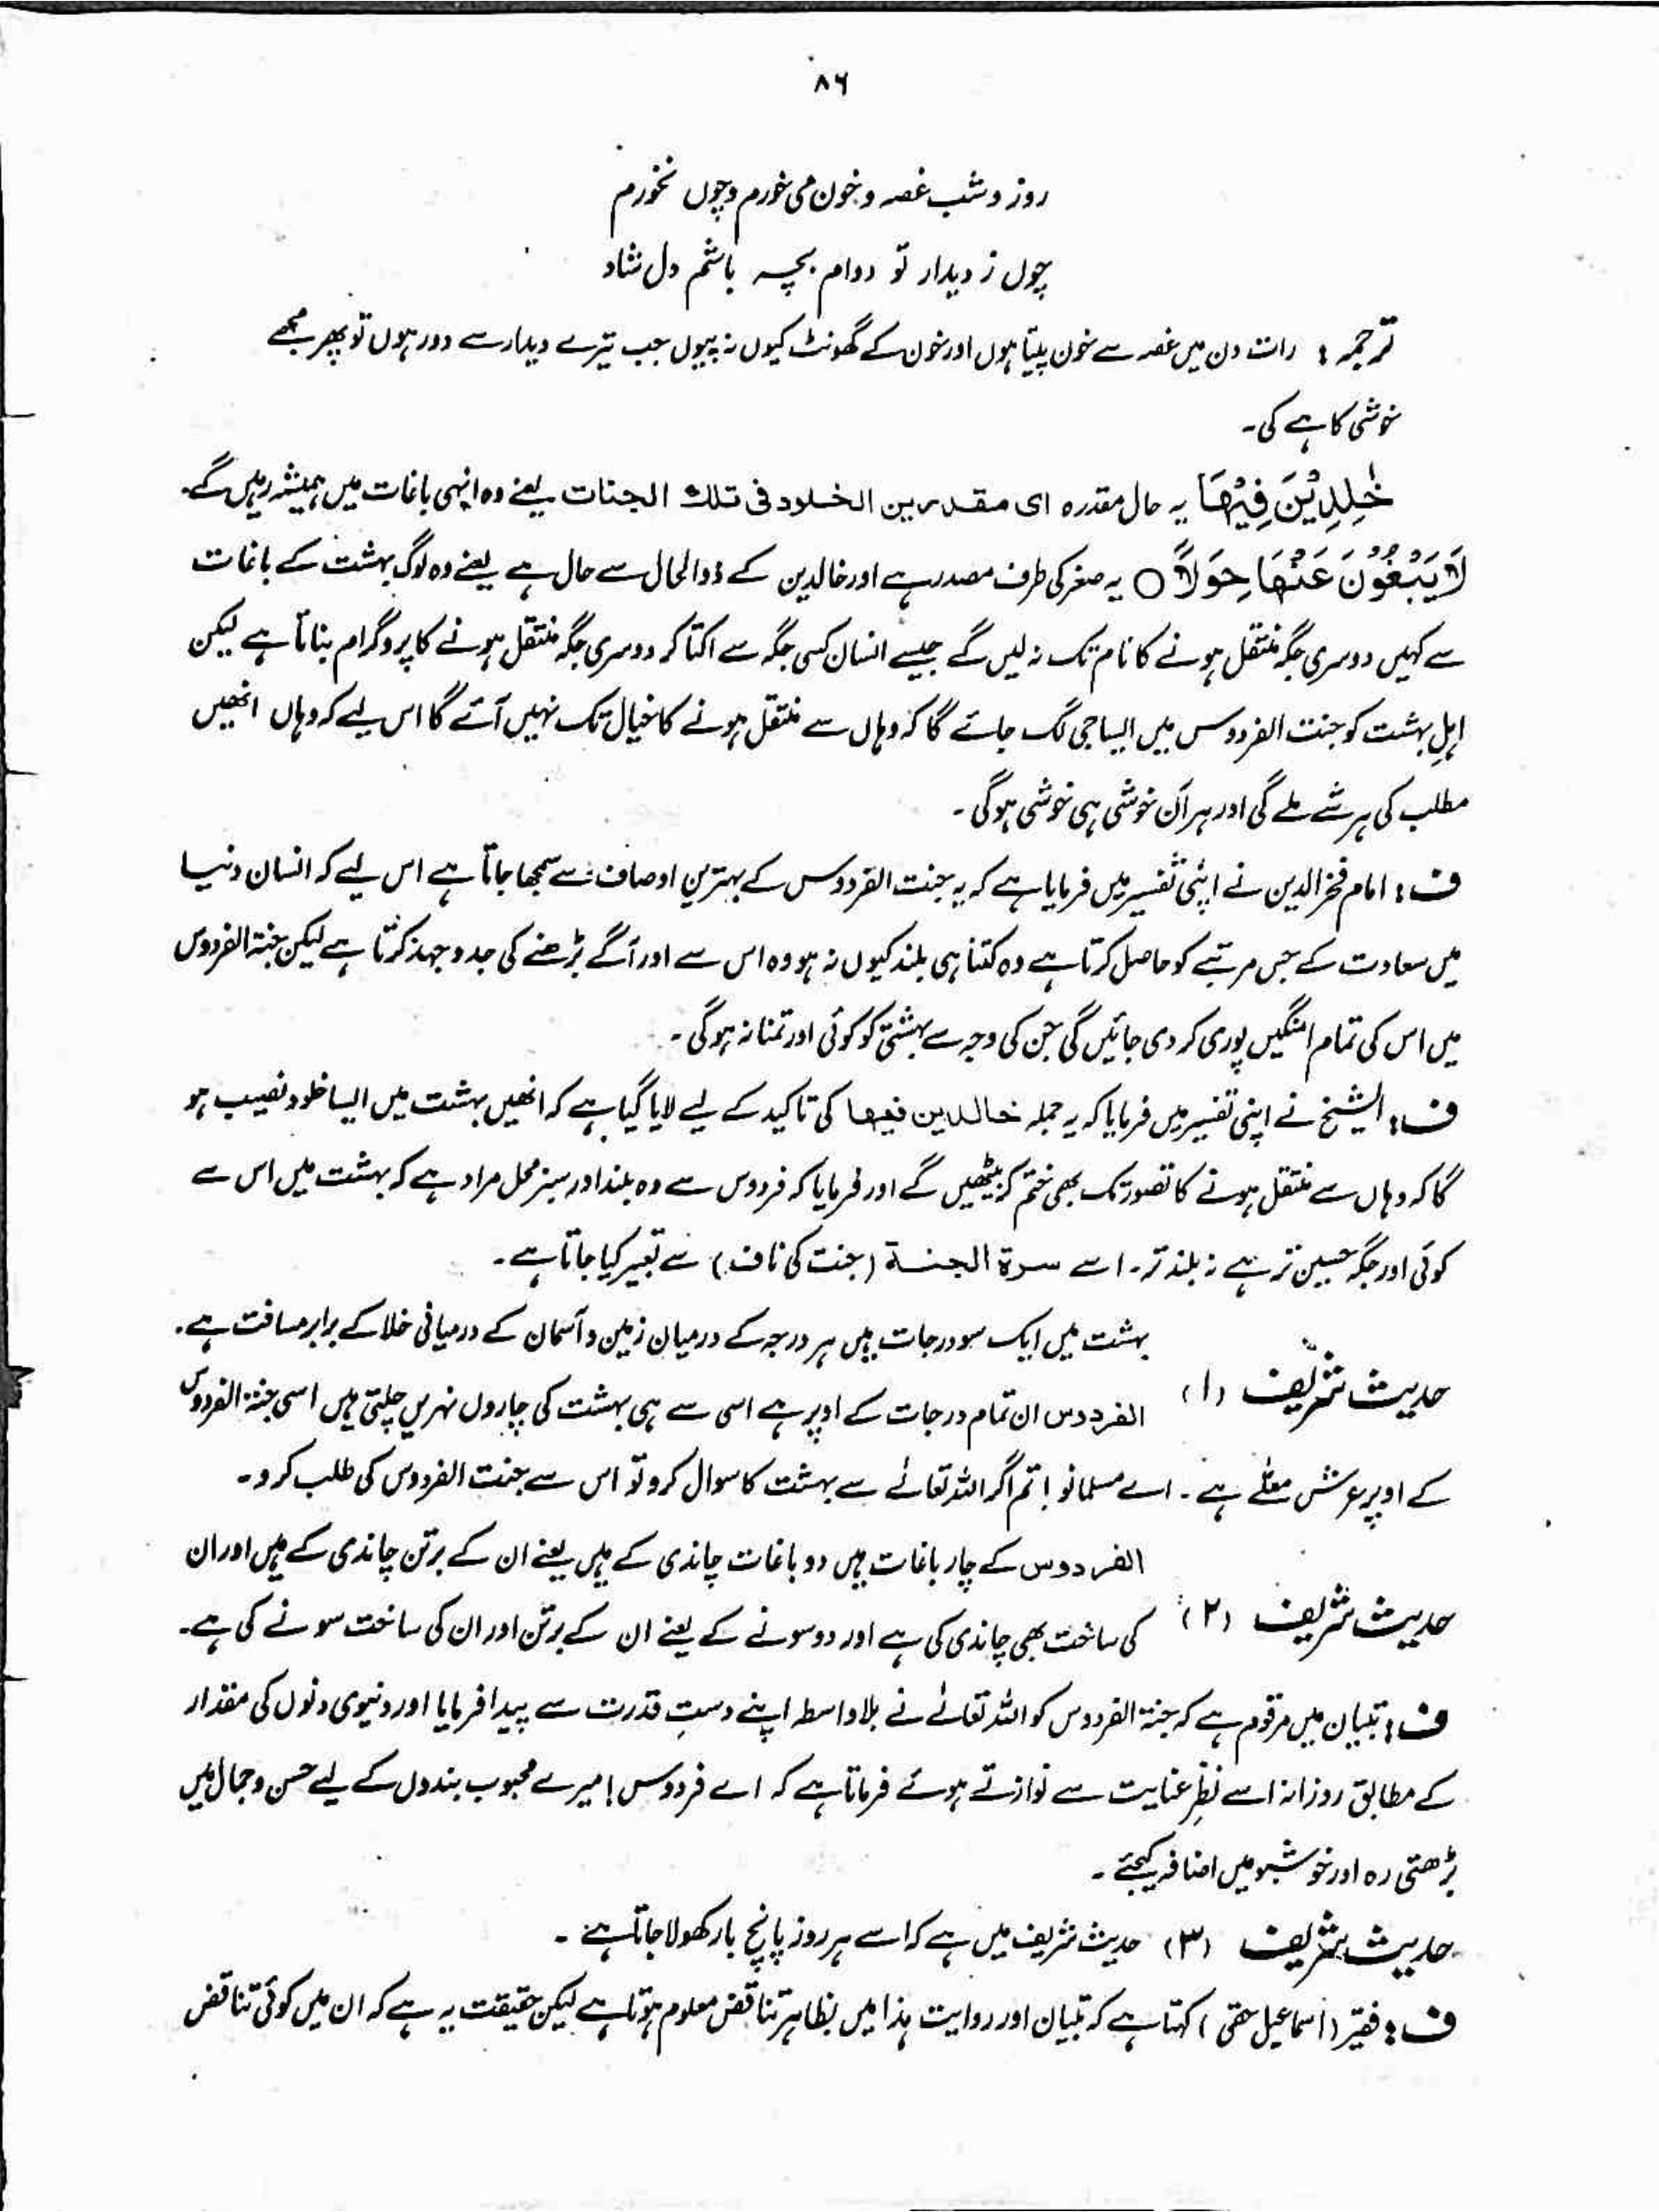 ۸۶
روز و شب غصہ و خون می خورم و چوں نخورم
چوں ز دیدار تو دورام بچہ باشم دل شاد
ترجمہ : رات دن میں غصہ سے خون پیتا ہوں اور خون کے گھونٹ کیوں نہ پیوں جب تیرے دیدار سے دور ہوں تو پھر مجھے
خوشی کاہے کی۔
خٰلِدِیْنَ فِیْهَا یہ حال مقدرہ ای مقدرین الخلود فی تلك الجنات یعنے وہ انہی باغات میں ہمیشہ رہیں گے۔
لَا یَبْغُوْنَ عَنْهَا حِوَلًا ○ یہ صغر کی طرف مصدر ہے اور خالدین کے ذوالحال سے حال ہے یعنے وہ لوگ بہشت کے باغات
سے کہیں دوسری جگہ منتقل ہونے کا نام تک نہ لیں گے جیسے انسان کسی جگہ سے اکتا کر دوسری جگہ منتقل ہونے کا پروگرام بناتا ہے لیکن
اہلِ بہشت کو جنت الفردوس میں ایسا جی لگ جائے گا کہ وہاں سے منتقل ہونے کا خیال تک نہیں آئے گا اس لیے کہ وہاں انھیں
مطلب کی ہر شے ملے گی اور ہر آن خوشی ہی خوشی ہوگی۔
ف : امام فخر الدین نے اپنی تفسیر میں فرمایا ہے کہ یہ جنت الفردوس کے بہترین اوصاف سے سمجھا جاتا ہے اس لیے کہ انسان دنیا
میں سعادت کے جس مرتبے کو حاصل کرتا ہے وہ کتنا ہی بلند کیوں نہ ہو وہ اس سے اور آگے بڑھنے کی جد و جہد کرتا ہے لیکن جنۃ الفردوس
میں اس کی تمام امنگیں پوری کر دی جائیں گی جن کی وجہ سے بہشتی کو کوئی اور تمنا نہ ہوگی۔
ف : الشیخ نے اپنی تفسیر میں فرمایا کہ یہ جملہ خالدین فیھا کی تاکید کے لیے لایا گیا ہے کہ انھیں بہشت میں ایسا خلود نصیب ہو
گا کہ وہاں سے منتقل ہونے کا تصور تک بھی ختم کر بیٹھیں گے اور فرمایا کہ فردوس سے وہ بلند اور سبز محل مراد ہے کہ بہشت میں اس سے
کوئی اور جگہ حسین تر ہے نہ بلند تر۔ اسے سرۃ الجنۃ (جنت کی ناف) سے تعبیر کیا جاتا ہے۔
بہشت میں ایک سو درجات ہیں ہر درجہ کے درمیان زمین و آسمان کے درمیانی خلا کے برابر مسافت ہے۔
حدیث شریف (۱) الفردوس ان تمام درجات کے اوپر ہے اسی سے ہی بہشت کی چاروں نہریں چلتی ہیں اسی جنۃ الفردوس
کے اوپر عرشِ معلّٰے ہے۔ اے مسلمانو! تم اگر اللہ تعالےٰ سے بہشت کا سوال کرو تو اس سے جنت الفردوس کی طلب کرو۔
الفردوس کے چار باغات ہیں دو باغات چاندی کے ہیں یعنے ان کے برتن چاندی کے ہیں اور ان
حدیث شریف (۲) کی ساخت بھی چاندی کی ہے اور دو سونے کے یعنے ان کے برتن اور ان کی ساخت سونے کی ہے۔
ف : تبیان میں مرقوم ہے کہ جنۃ الفردوس کو اللہ تعالےٰ نے بلا واسطہ اپنے دستِ قدرت سے پیدا فرمایا اور دنیوی دنوں کی مقدار
کے مطابق روزانہ اسے نظرِ عنایت سے نوازتے ہوئے فرماتا ہے کہ اے فردوس! میرے محبوب بندوں کے لیے حسن و جمال میں
بڑھتی رہ اور خوشبو میں اضافہ کیجئے۔
حدیث شریف (۳) حدیث شریف میں ہے کہ اسے ہر روز پانچ بار کھولا جاتا ہے۔
ف : فقیر (اسماعیل حقی) کہتا ہے کہ تبیان اور روایت ہذا میں بظاہر تناقض معلوم ہوتا ہے لیکن حقیقت یہ ہے کہ ان میں کوئی تناقض